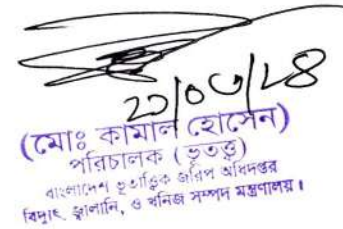 ২১/০৩/২৪
(মোঃ কামাল হোসেন)
পরিচালক (ভূতত্ত্ব)
বাংলাদেশ ভূতাত্ত্বিক জরিপ অধিদপ্তর
বিদ্যুৎ, জ্বালানি, ও খনিজ সম্পদ মন্ত্রণালয়।